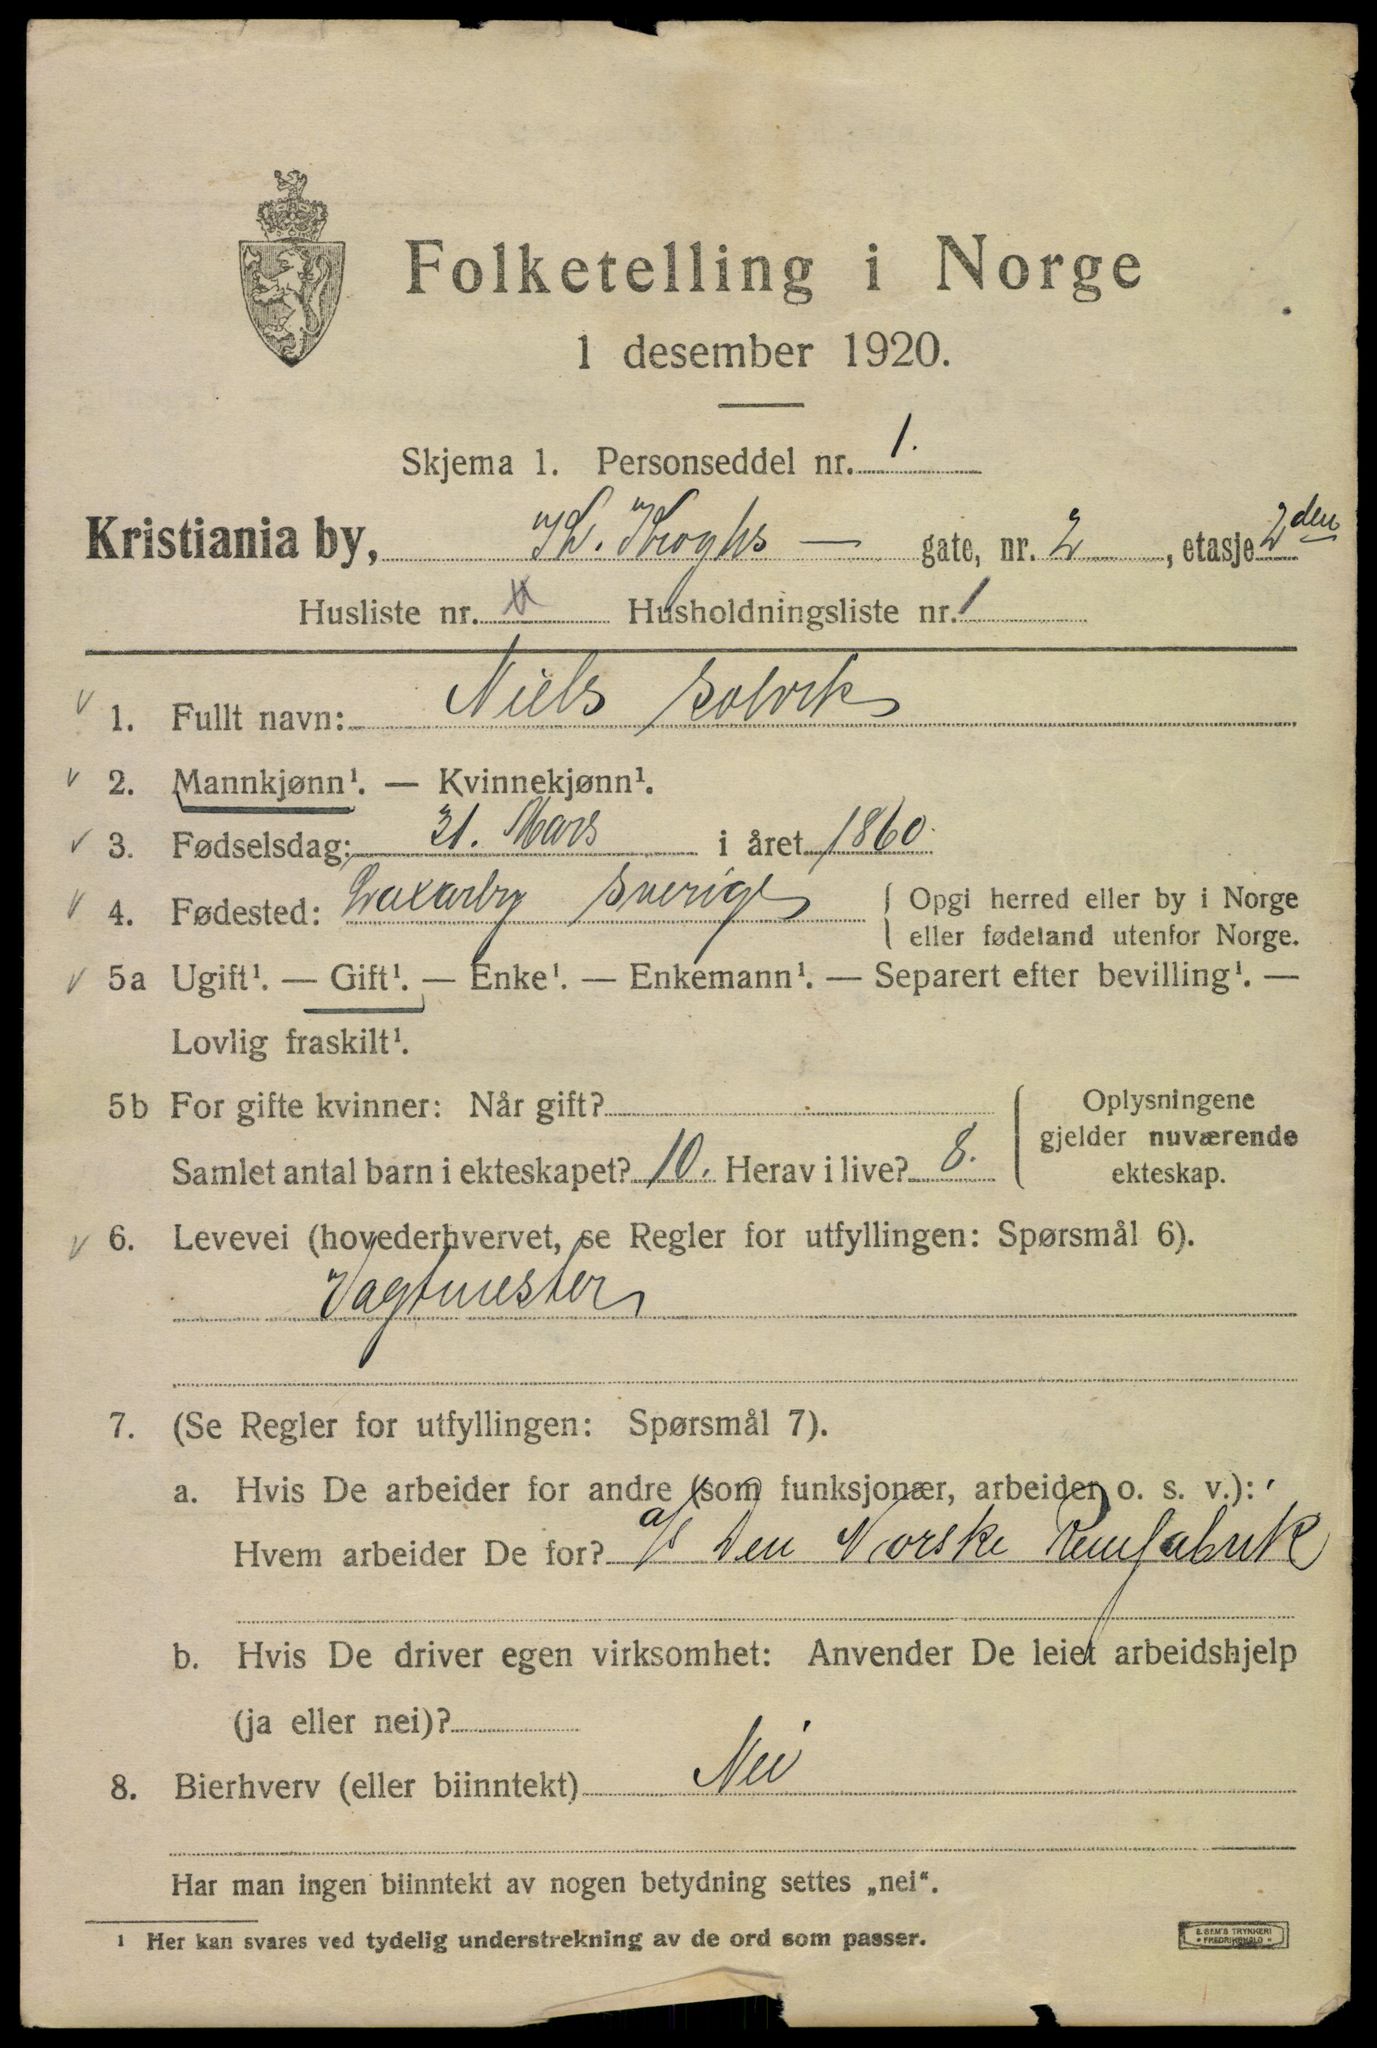 Folketelling i Norge
1 desember 1920.
Skjema 1. Personseddel nr. 1.
Kristiania by, Kr. Kroghs — gate, nr. 2, etasje 2den
Husliste nr. Husholdningsliste nr. 1
1. Fullt navn: Niels Solvik
2. Mannkjønn¹. — Kvinnekjønn¹.
3. Fødselsdag: 31. Mars i året 1860.
4. Fødested: Laxarby Sverige { Opgi herred eller by i Norge
eller fødeland utenfor Norge.
5a Ugift¹. — Gift¹. — Enke¹. — Enkemann¹. — Separert efter bevilling¹. —
Lovlig fraskilt¹.
5b For gifte kvinner: Når gift? Oplysningene
gjelder nuværende
Samlet antal barn i ekteskapet? 10. Herav i live? 8. ekteskap.
6. Levevei (hovederhvervet, se Regler for utfyllingen: Spørsmål 6).
Vagtmester
7. (Se Regler for utfyllingen: Spørsmål 7).
a. Hvis De arbeider for andre (som funksjonær, arbeider o. s. v.):
Hvem arbeider De for? a/s Den Norske Remfabrik
b. Hvis De driver egen virksomhet: Anvender De leiet arbeidshjelp
(ja eller nei)?
8. Bierhverv (eller biinntekt) Nei
Har man ingen biinntekt av nogen betydning settes „nei“.
¹ Her kan svares ved tydelig understrekning av de ord som passer.
E. SEM'S TRYKKERI
* FREDRIKSHALD *